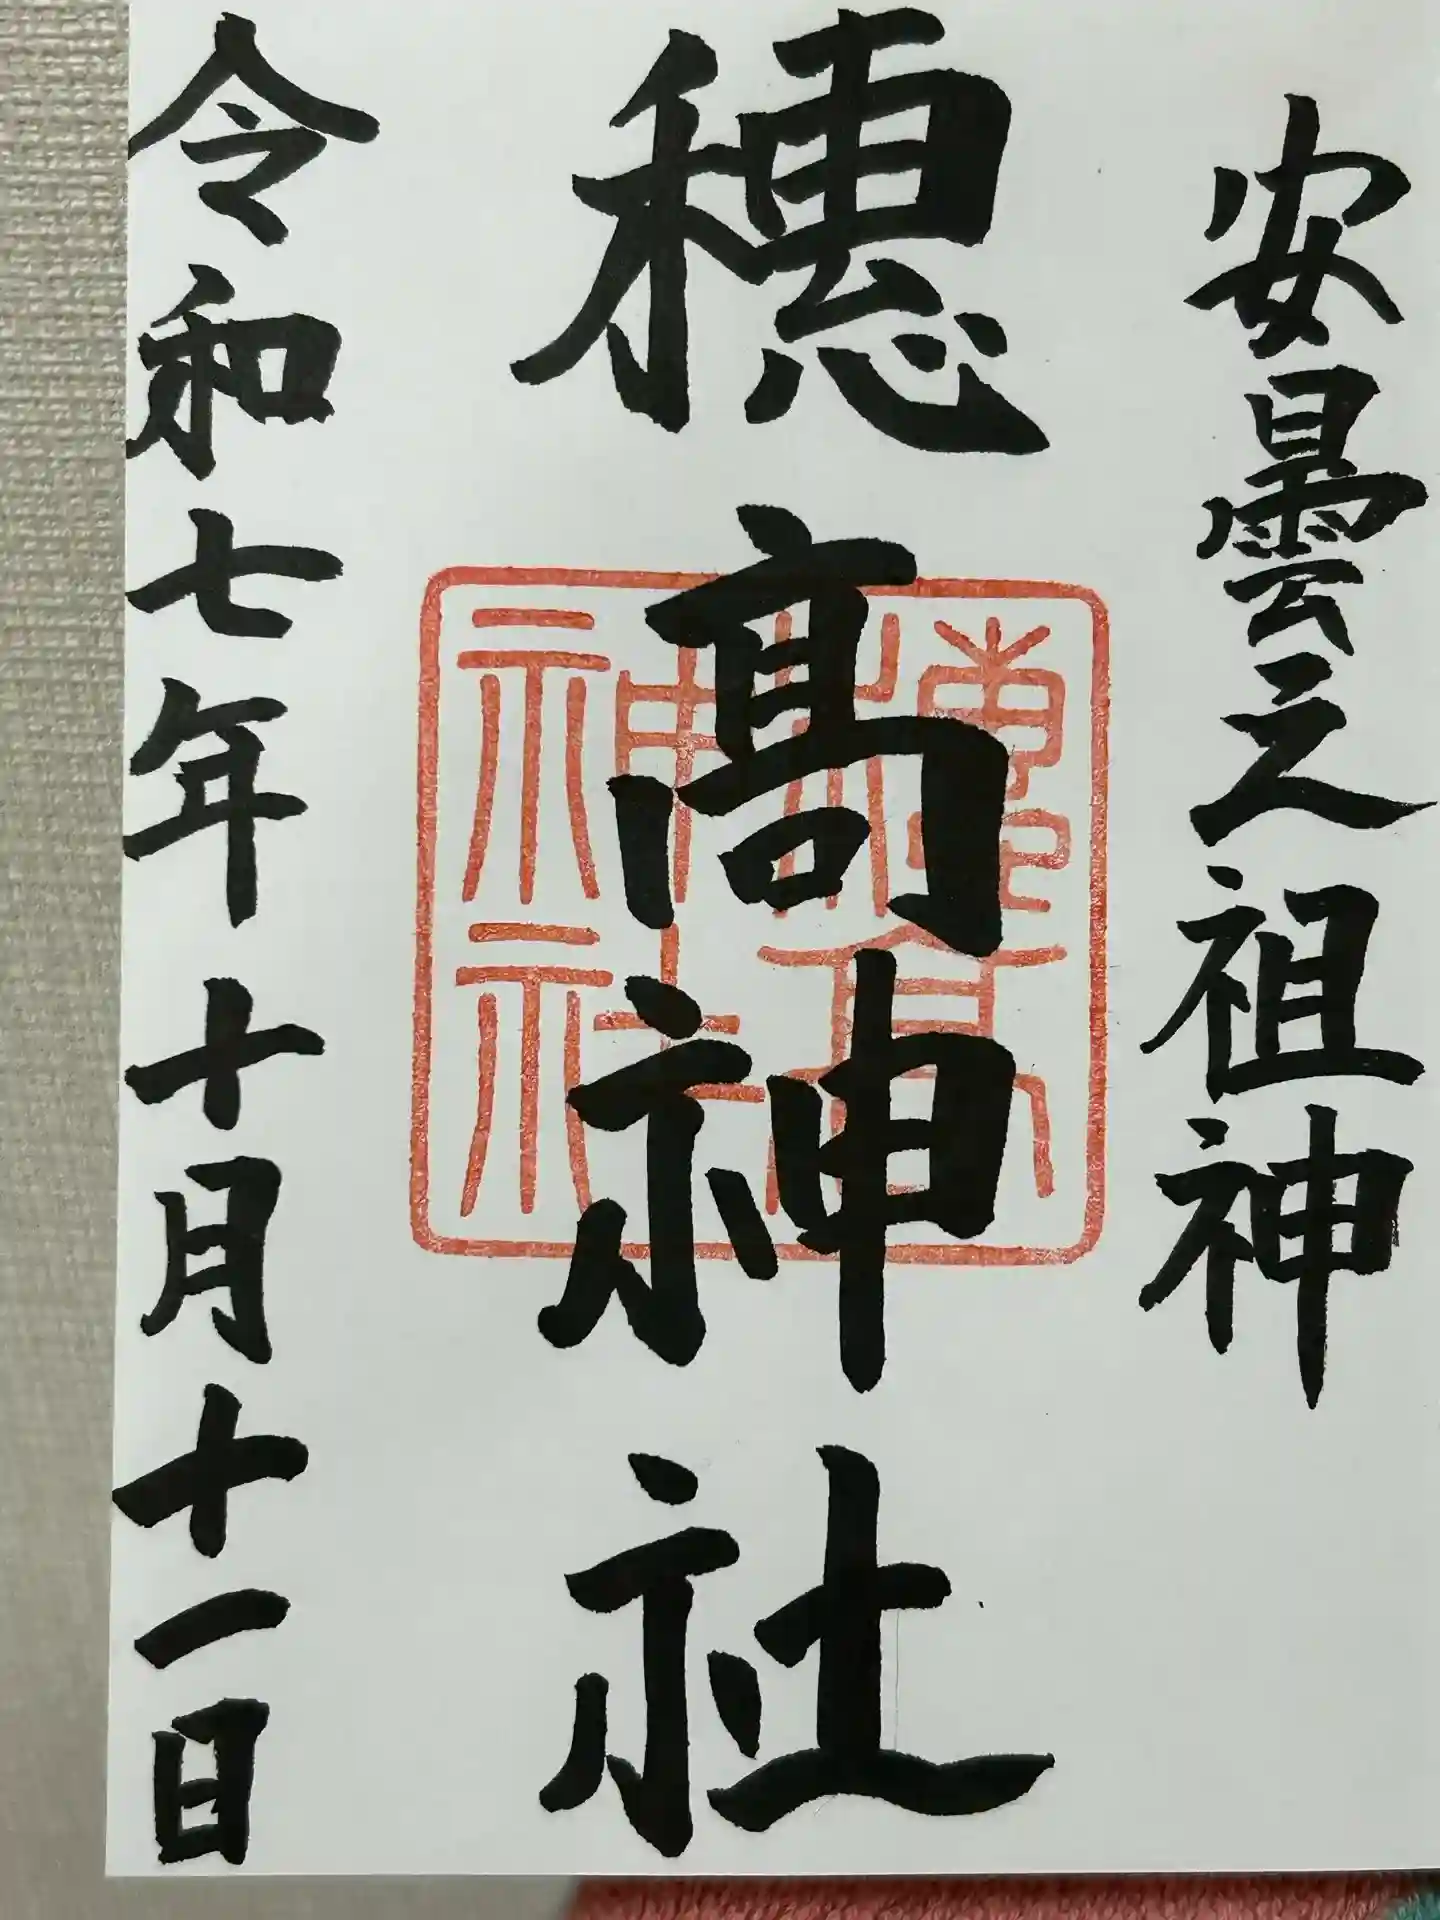 安曇之祖神
穂髙神社
穂高神社
令和七年十月十一日